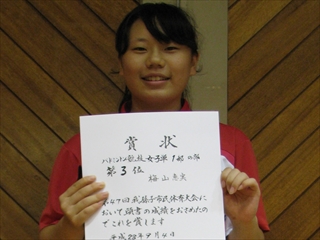 賞状
バドミントン競技 女子単 1部の部
第3位
梅山
第47回我孫子市民体育大会に
おいて頭書の成績をおさめたの
でこれを賞します
平成28年9月4日